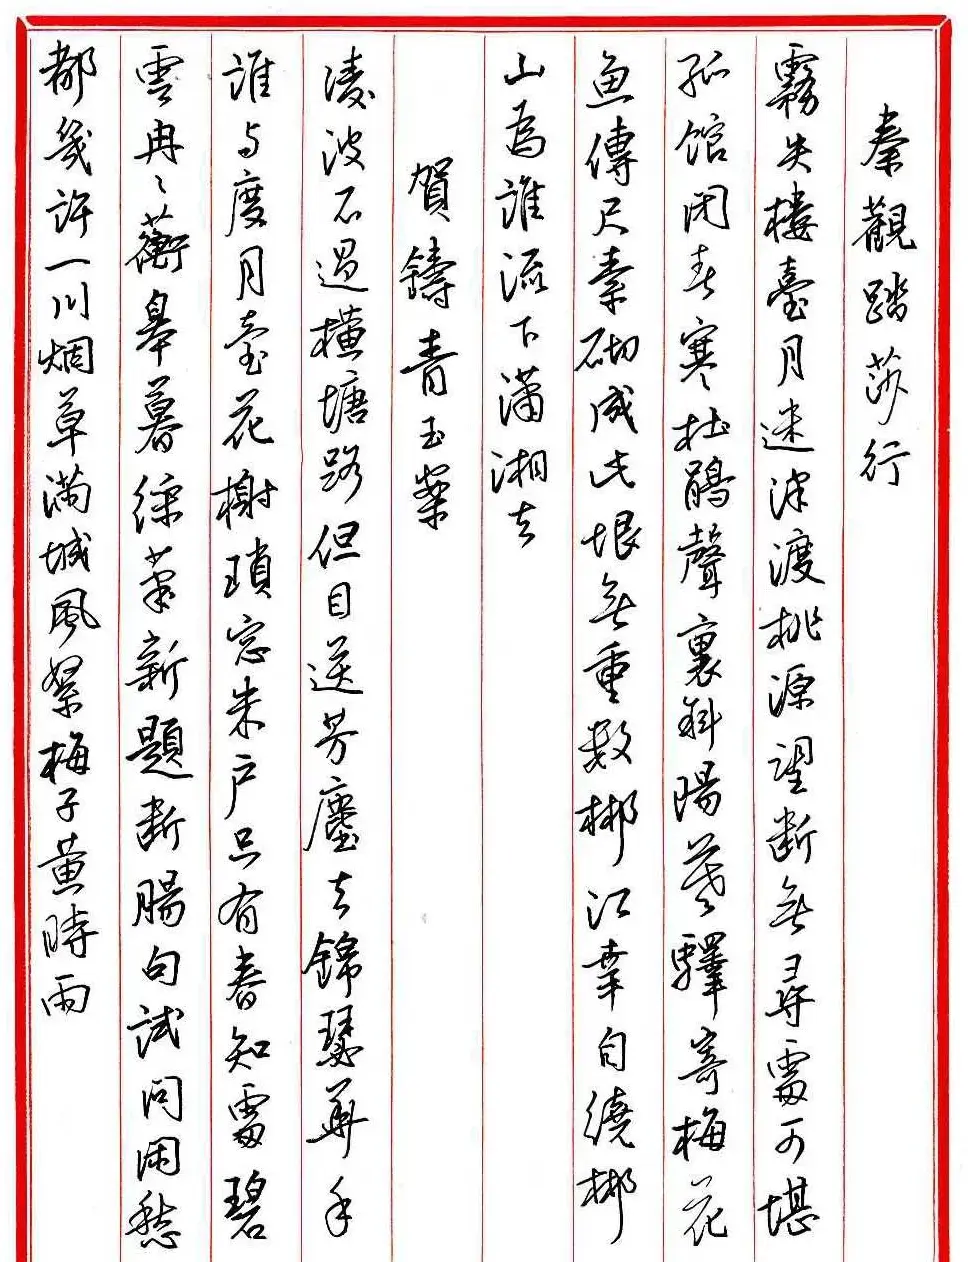 秦觀踏莎行
霧失樓臺月迷津渡桃源望斷無尋處可堪
孤館閉春寒杜鵑聲裏斜陽暮驛寄梅花
魚傳尺素砌成此恨無重數郴江幸自繞郴
山為誰流下瀟湘去
賀鑄青玉案
凌波不過橫塘路但目送芳塵去錦瑟華年
誰與度月臺花榭瑣窗朱戶只有春知處碧
雲冉冉蘅皋暮綵筆新題斷腸句試問閑愁
都幾許一川烟草滿城風絮梅子黃時雨